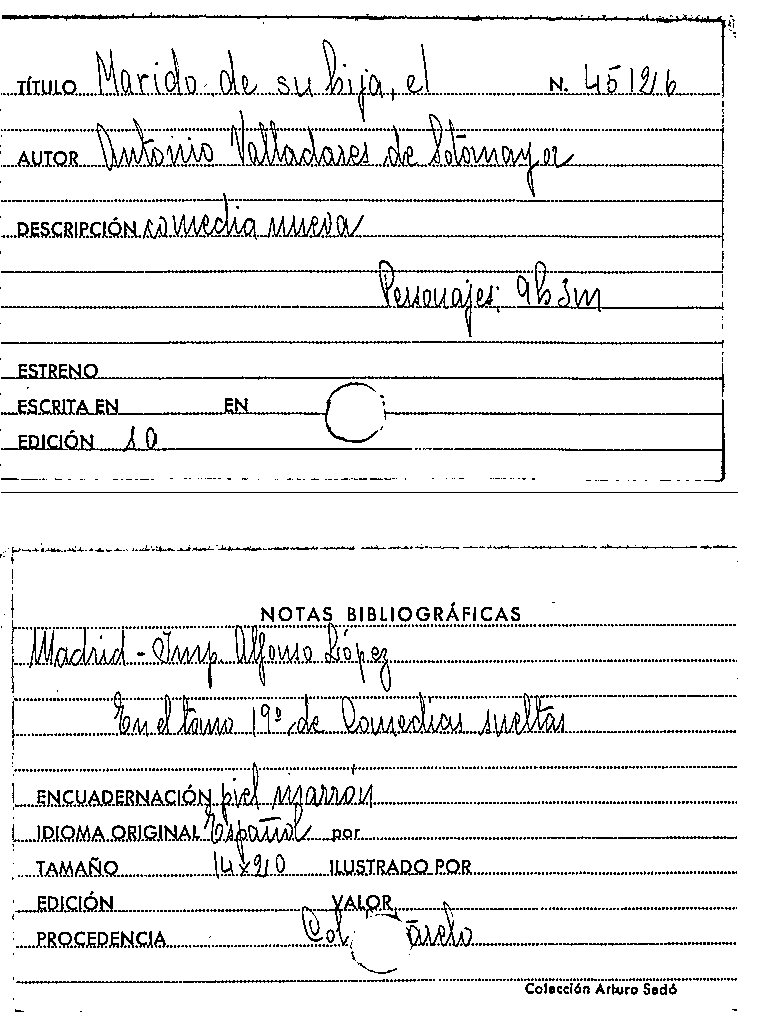 TÍTULO Marido de su hija, el N. 45126
AUTOR Antonio Valladares de Sotomayor
DESCRIPCIÓN comedia nueva
Personajes: 9h 3m
ESTRENO
ESCRITA EN EN
EDICIÓN
NOTAS BIBLIOGRÁFICAS
Madrid - Imp. Alfonso López
En el tomo 19º de Comedias sueltas
ENCUADERNACIÓN piel marrón
IDIOMA ORIGINAL Español por
TAMAÑO 14x20 ILUSTRADO POR
EDICIÓN VALOR
PROCEDENCIA
Colección Arturo Sedó